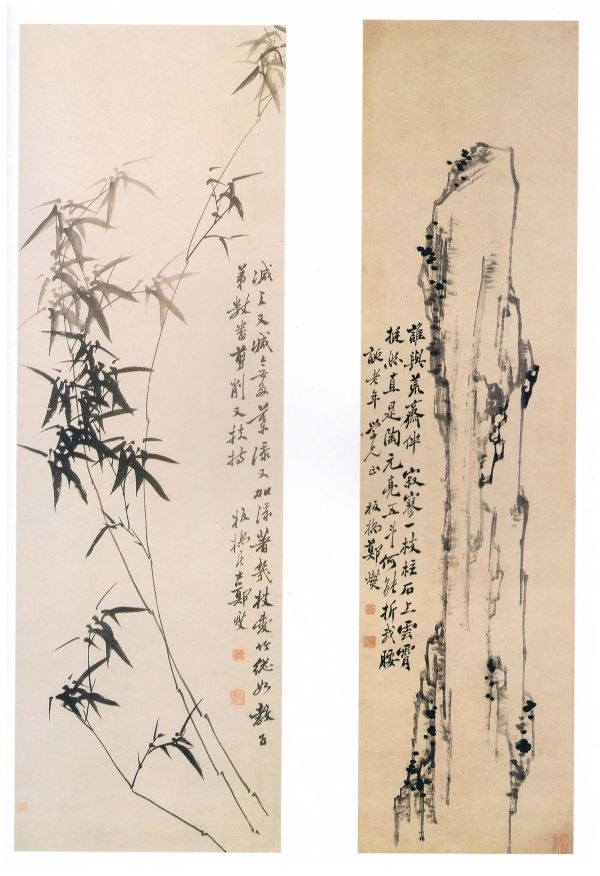 減之又減無多葉添又加添著幾枝愛竹總如教子
弟數番剪削又扶持 板橋居士鄭燮
誰與荒齋伴寂寥一枝柱石上雲霄
挺然直是陶元亮五斗何能折我腰
老年學兄正 板橋鄭燮